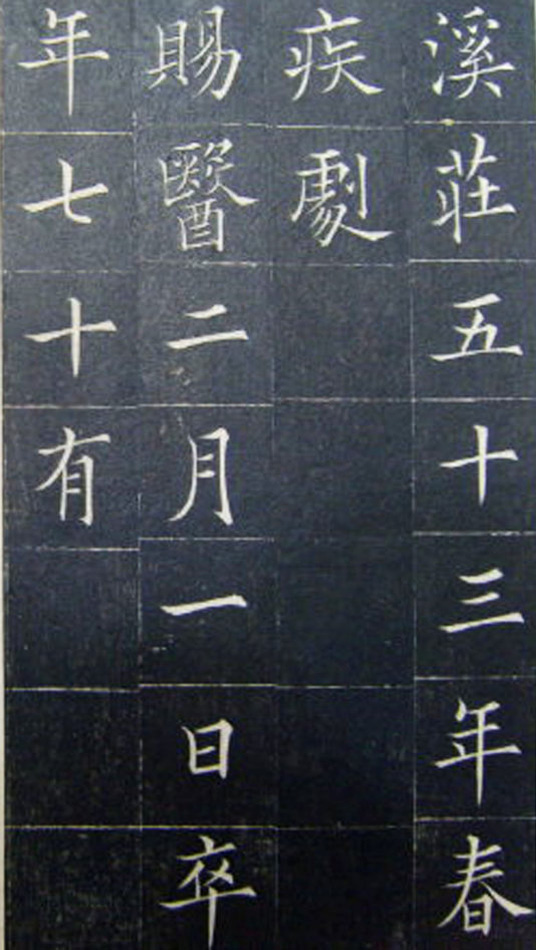 溪莊五十三年春
疾劇
賜醫二月一日卒
年七十有